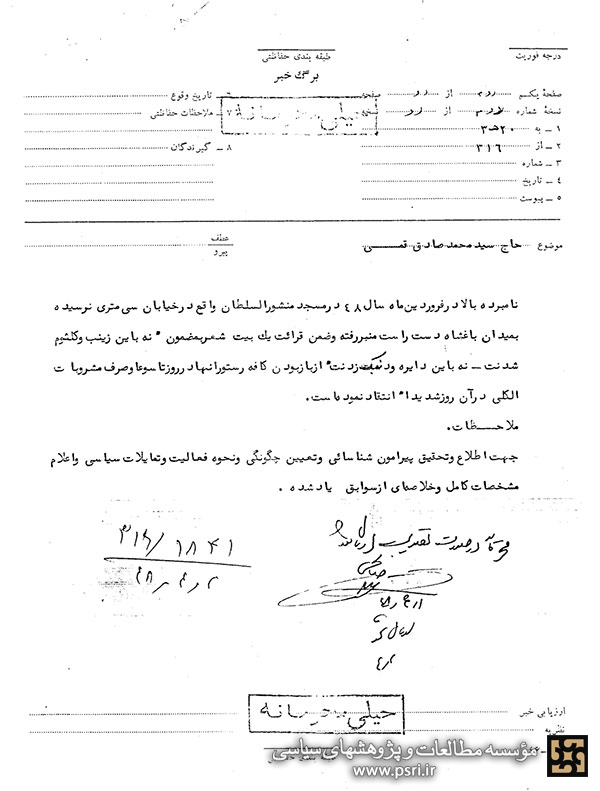 درجه فوریت
طبقه بندی حفاظتی
برگ خبر
صفحهٔ یکم از صفحه
نسخهٔ شماره از نسخه
۱ ـ به ۲۰هـ۳
۲ ـ از ۳۱۶
۳ ـ شماره
۴ ـ تاریخ
۵ ـ پیوست
۶ ـ تاریخ وقوع
۷ ـ ملاحظات حفاظتی
۸ ـ گیرندگان
خیلی محرمانه
موضوع حاج سید محمد صادق قمی
عطف
پیرو
نامبرده بالا در فروردین ماه سال ۴۸ در مسجد منشورالسلطان واقع در خیابان سی متری نرسیده
بمیدان باغشاه دست راست منبر رفته و ضمن قرائت یک بیت شعر بمضمون " نه باین زینب و کلثوم
شدنت ـ نه باین دایره و دنبک زدنت" از باز بودن کافه رستورانها در روز تاسوعا و صرف مشروبات
الکلی در آن روز شدیدا" انتقاد نموده است.
ملاحظات.
جهت اطلاع و تحقیق پیرامون شناسائی و تعیین چگونگی و نحوه فعالیت و تمایلات سیاسی و اعلام
مشخصات کامل و خلاصه‌ای از سوابق یاد شده .
۳۱۶/۱۸۴۱
ارزیابی خبر
نظریه
خیلی محرمانه
مؤسسه مطالعات و پژوهشهای سیاسی
www.psri.ir